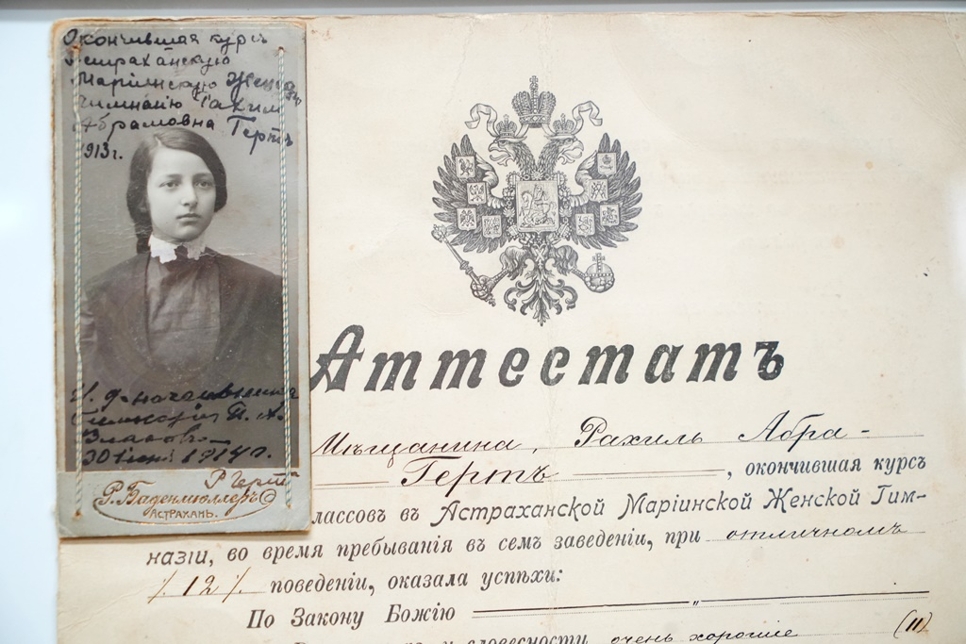 Окончившая курсъ
Астраханскую
Маріинскую Женск.
Гимназію Рахиль
Абрамовна Гертъ
1913 г.
И. д. начальника
Гимназіи
30 1914 г.
Р. Гертъ
Р. Баденмюллеръ
Астрахань.
Аттестатъ
Мѣщанина, Рахиль Абра-
Гертъ, окончившая курс
лассовъ въ Астраханской Маріинской Женской Гим-
назіи, во время пребыванія въ семъ заведеніи, при отличномъ
/. 12 /. поведеніи, оказала успѣхи:
По Закону Божію „
словесности очень хорошіе (11)